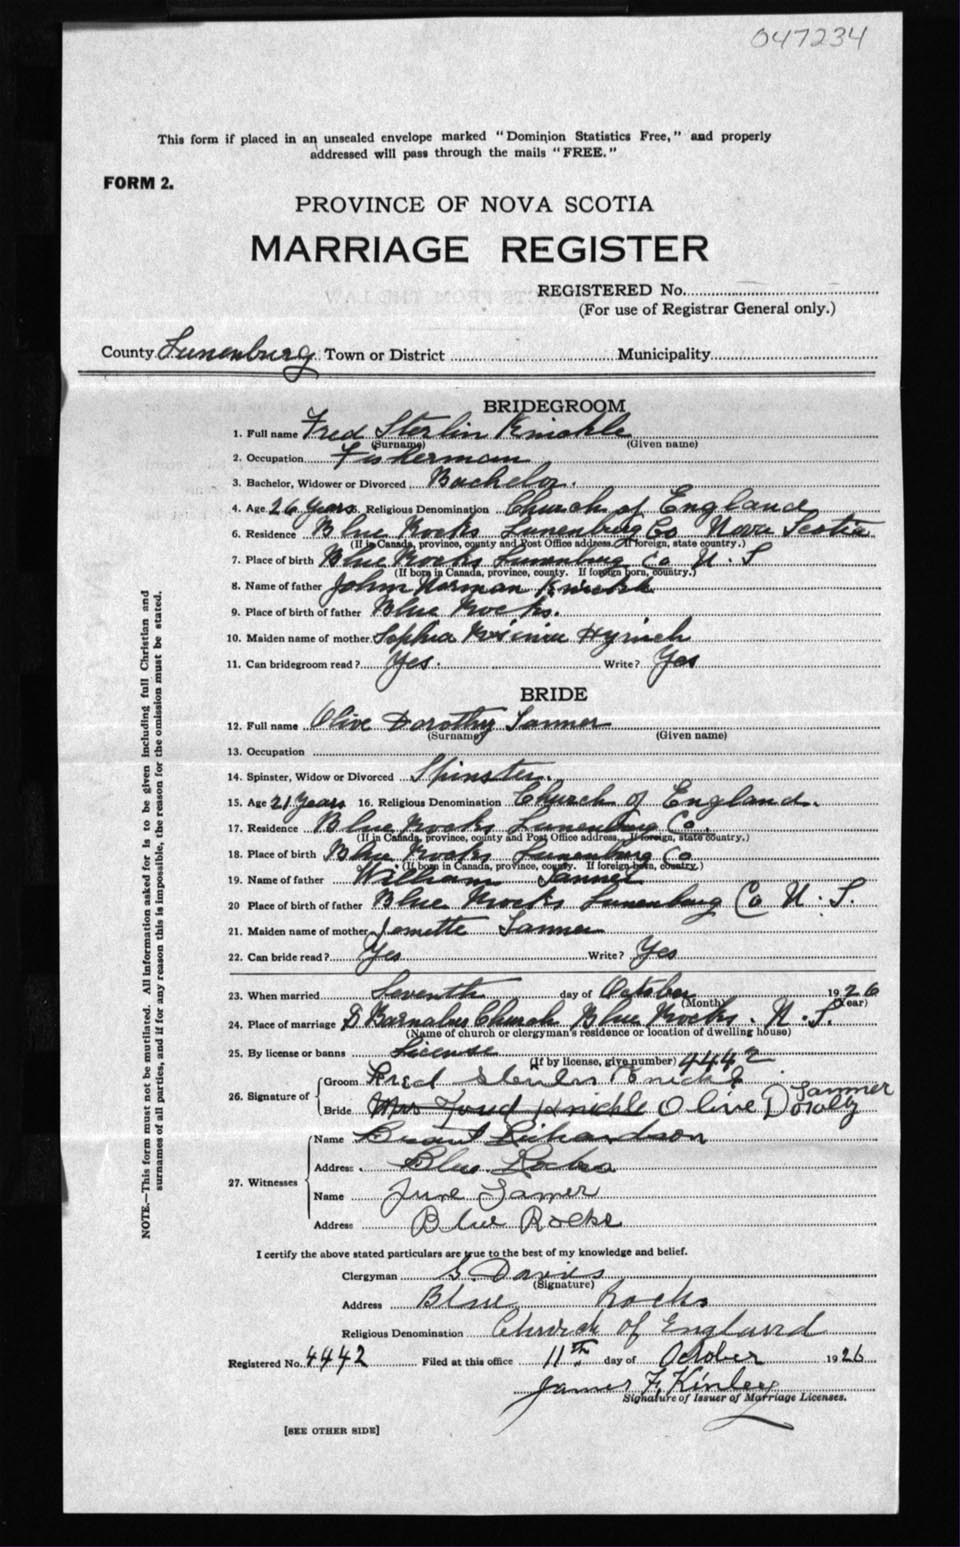 047234
This form if placed in an unsealed envelope marked "Dominion Statistics Free," and properly
addressed will pass through the mails "FREE."
FORM 2.
PROVINCE OF NOVA SCOTIA
MARRIAGE REGISTER
REGISTERED No.
(For use of Registrar General only.)
County Lunenburg Town or District Municipality
BRIDEGROOM
1. Full name Fred Sterlin Knickle
(Surname) (Given name)
2. Occupation Fisherman
3. Bachelor, Widower or Divorced Bachelor.
4. Age 26 Years 5. Religious Denomination Church of England
6. Residence Blue Rocks Lunenburg Co Nova Scotia
(If in Canada, province, county and Post Office address. If foreign, state country.)
7. Place of birth Blue Rocks Lunenburg Co N. S
(If born in Canada, province, county. If foreign born, country.)
8. Name of father John Norman Knickle
9. Place of birth of father Blue Rocks.
10. Maiden name of mother Sophia Hynick
11. Can bridegroom read? Yes. Write? Yes
BRIDE
12. Full name Olive Dorothy Tanner
(Surname) (Given name)
13. Occupation
14. Spinster, Widow or Divorced Spinster.
15. Age 21 Years 16. Religious Denomination Church of England.
17. Residence Blue Rocks Lunenburg Co.
(If in Canada, province, county and Post Office address. If foreign, state country.)
18. Place of birth Blue Rocks Lunenburg Co
(If born in Canada, province, county. If foreign born, country.)
19. Name of father William Tanner
20 Place of birth of father Blue Rocks Lunenburg Co N. S.
21. Maiden name of mother Tanner
22. Can bride read? Yes Write? Yes
23. When married Seventh day of October 1926
(Month) (Year)
24. Place of marriage S Barnabas Church Blue Rocks. N. S.
(Name of church or clergyman's residence or location of dwelling house)
25. By license or banns License (If by license, give number) 4442
26. Signature of Groom Fred Knickle
Bride Mrs Fred Knickle Olive Doraly Tanner
27. Witnesses Name Richardson
Address Blue Rocks
Name June Tanner
Address Blue Rocks
I certify the above stated particulars are true to the best of my knowledge and belief.
Clergyman S. Davies
(Signature)
Address Blue Rocks
Religious Denomination Church of England
Registered No. 4442 Filed at this office 11th day of October 1926
James F. Kinley
Signature of Issuer of Marriage Licenses.
[SEE OTHER SIDE]
NOTE.—This form must not be mutilated. All information asked for is to be given including full Christian and
surnames of all parties, and if for any reason this is impossible, the reason for the omission must be stated.